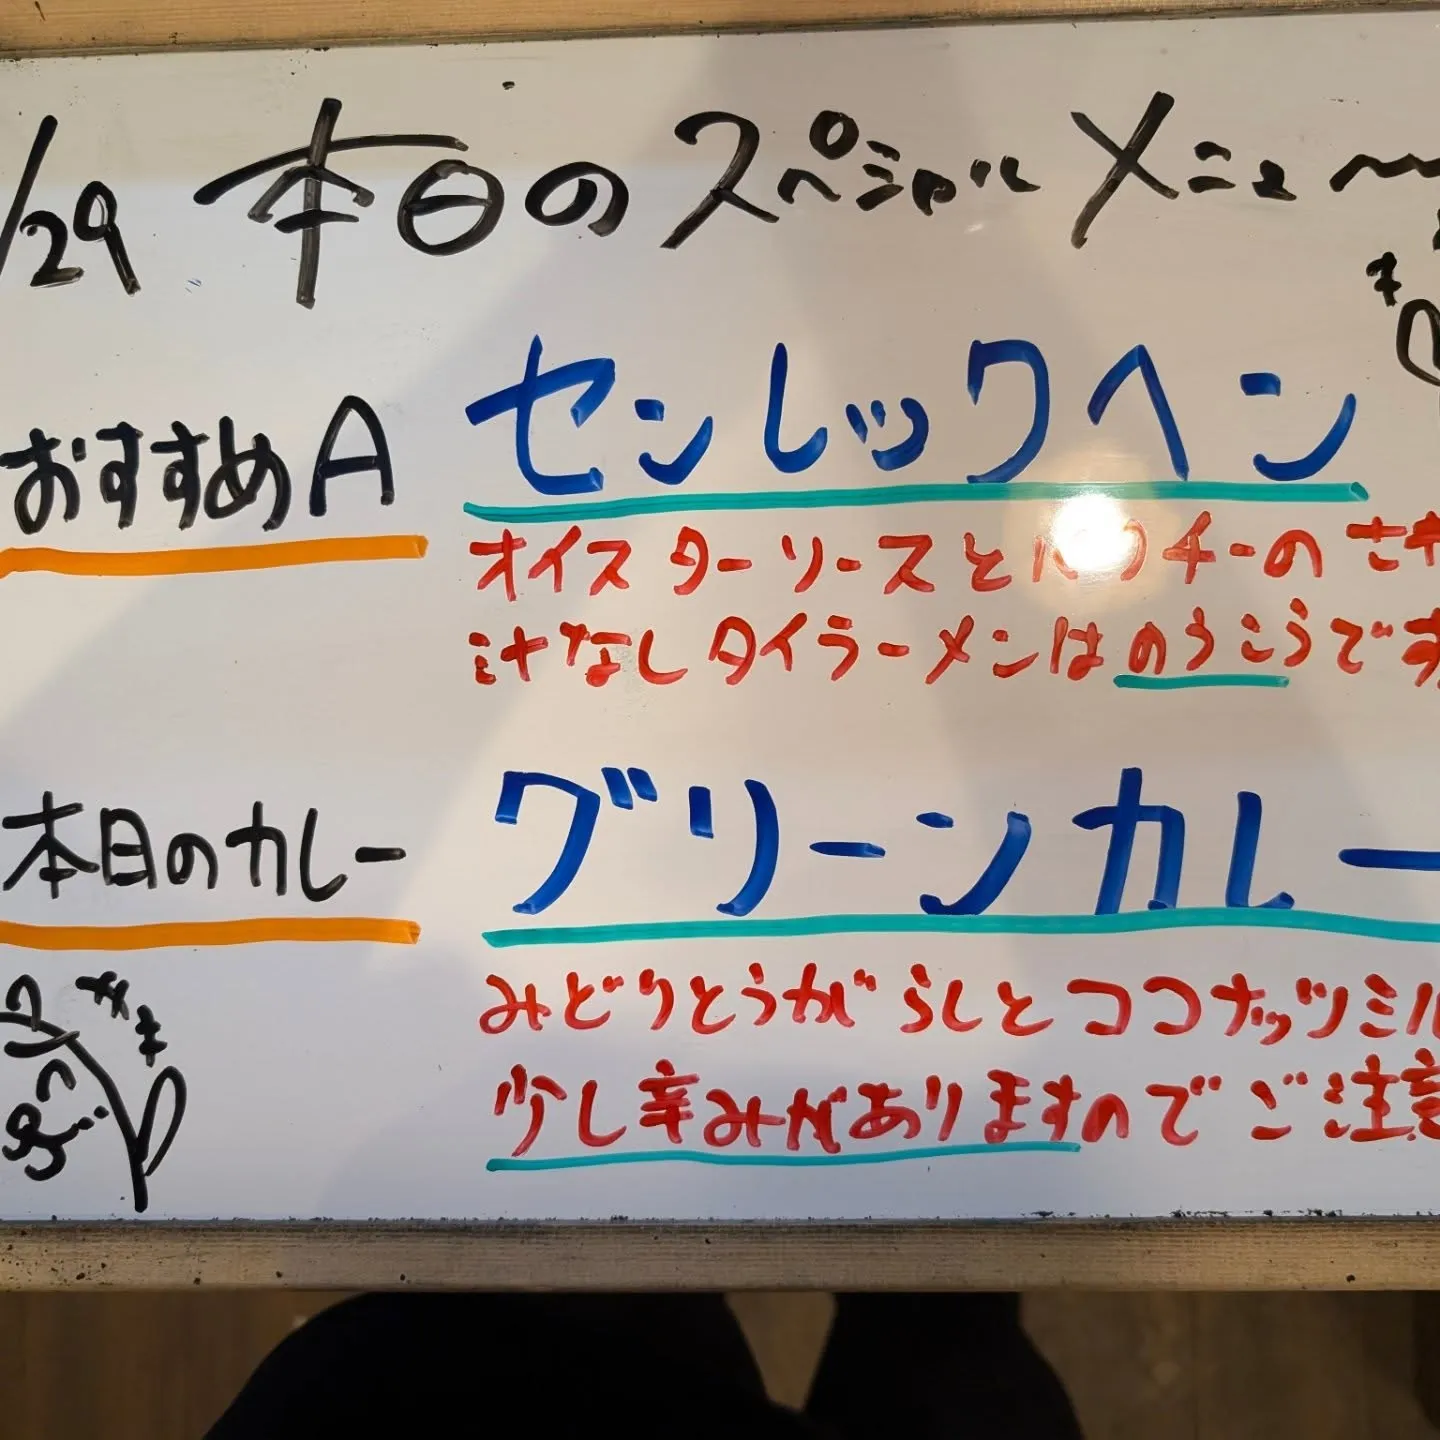 /29 本日のスペシャルメニュ〜
おすすめA
センレックヘン
オイスターソースとパクチーの
汁なしタイラーメンはのうこうです
本日のカレー
グリーンカレー
みどりとうがらしとココナッツミル
少し辛みがありますのでご注意